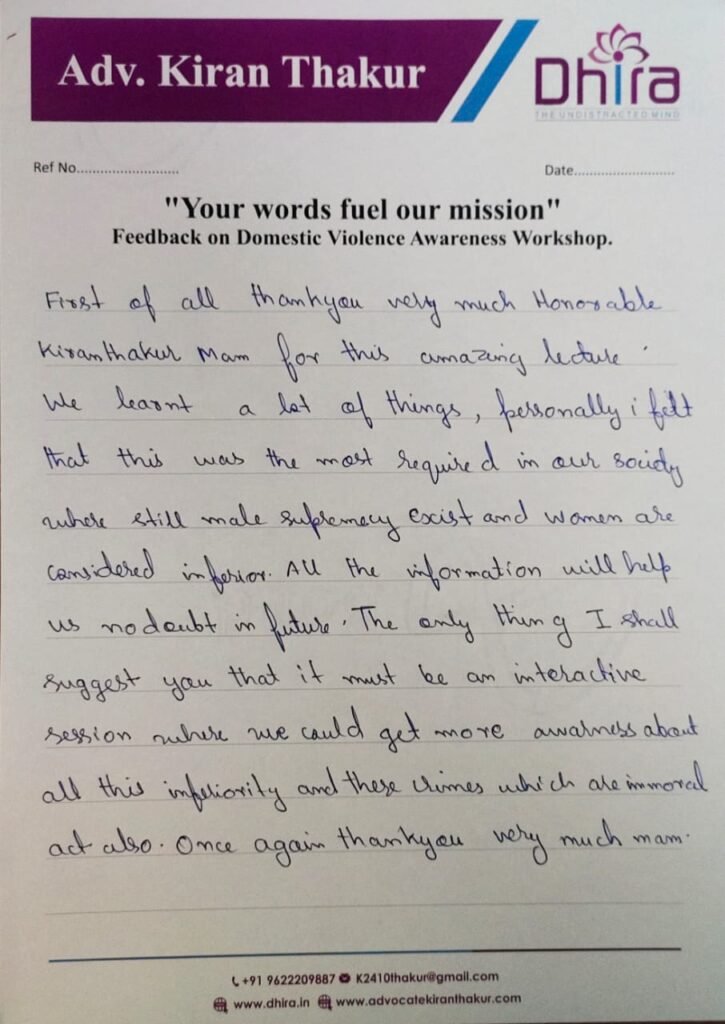 Adv. Kiran Thakur
Dhira
THE UNDISTRACTED MIND
Ref No..........................
Date.........................
"Your words fuel our mission"
Feedback on Domestic Violence Awareness Workshop.
First of all thankyou very much Honorable
Kiranthakur Mam for this amazing lecture.
We learnt a lot of things, personally i felt
that this was the most required in our society
where still male supremacy exist and women are
considered inferior. All the information will help
us no doubt in future. The only thing I shall
suggest you that it must be an interactive
session where we could get more awarness about
all this inferiority and these crimes which are immoral
act also. Once again thankyou very much mam.
+91 9622209887 K2410thakur@gmail.com
www.dhira.in www.advocatekiranthakur.com